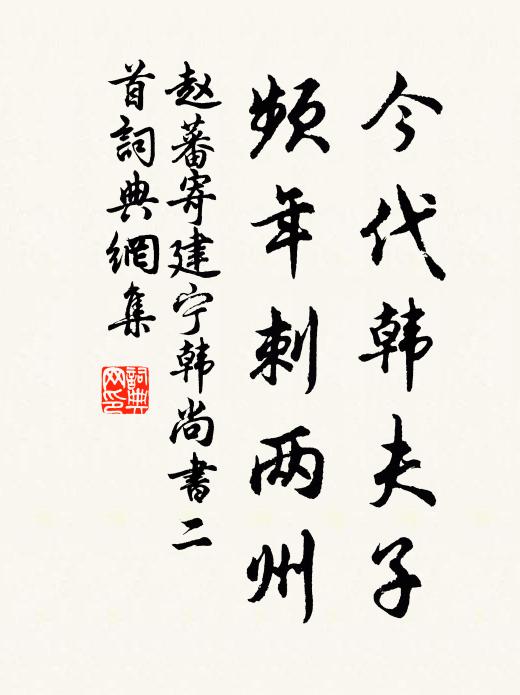 今代韩夫子
频年刺两州
赵蕃寄建宁韩尚书二
首詞典網集
詞典
网印